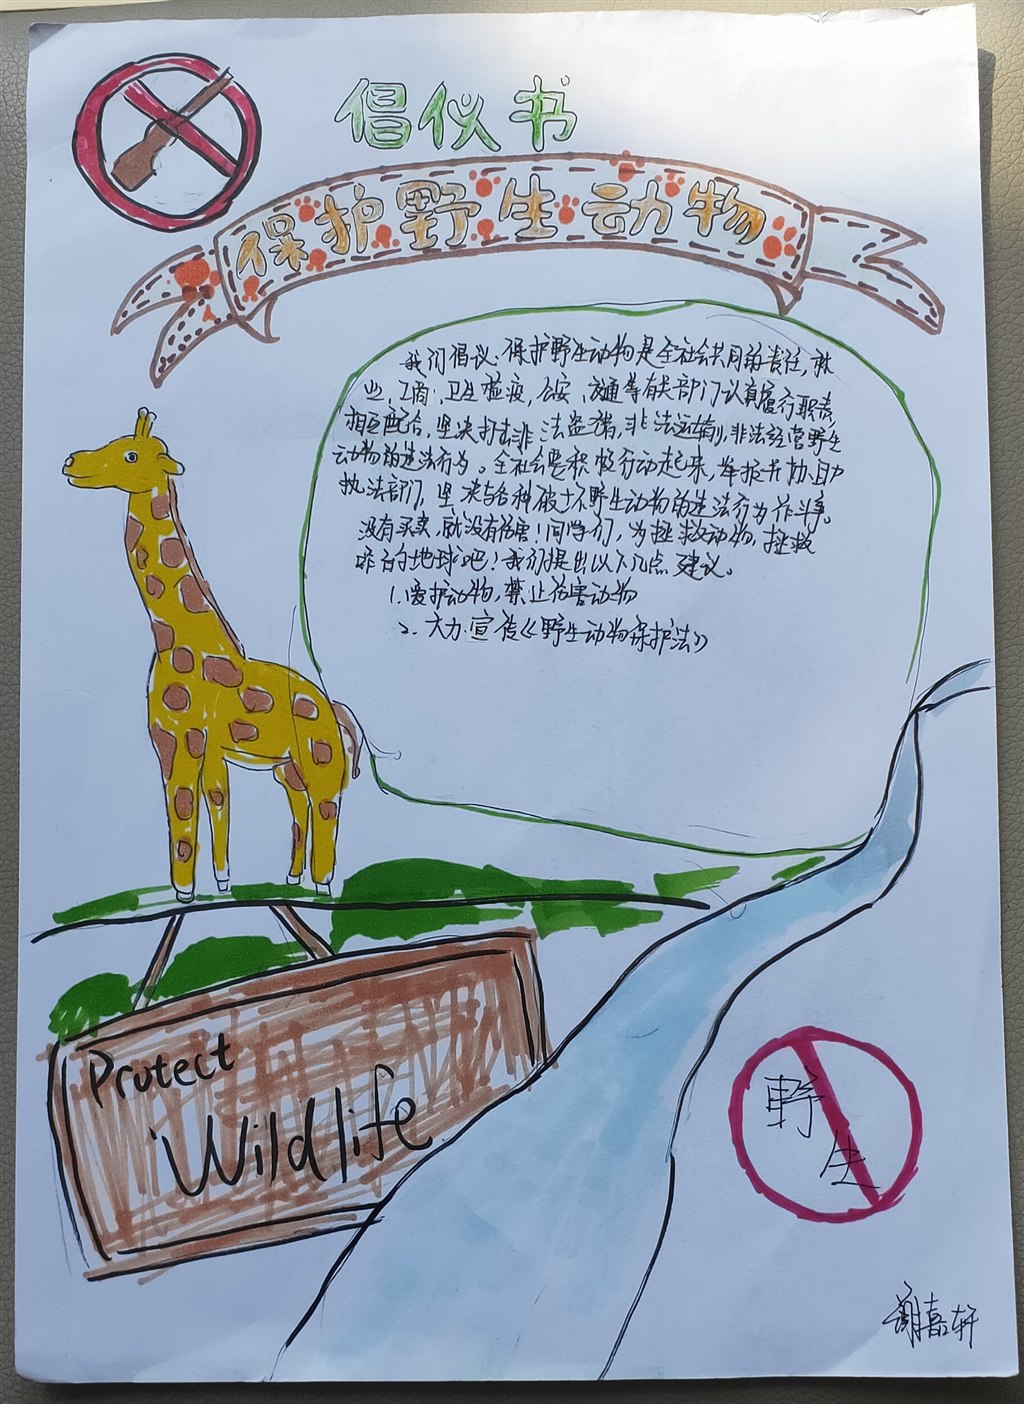 倡仪书
保护野生动物
我们倡议:保护野生动物是全社会共同的责任,林
业、工商、卫生检疫,公安、交通等有关部门认真履行职责,
相互配合,坚决打击非法盗猎,非法运输,非法经营野生
动物的违法行为。全社会要积极行动起来,举报并协助
执法部门,坚决与各种破坏野生动物的违法行为作斗争。
没有买卖,就没有伤害!同学们,为拯救动物,拯救
咱们的地球吧!我们提出以下几点建议。
1.爱护动物,禁止伤害动物
2.大力宣传《野生动物保护法》
Protect
Wildlife
野
生
谢嘉轩